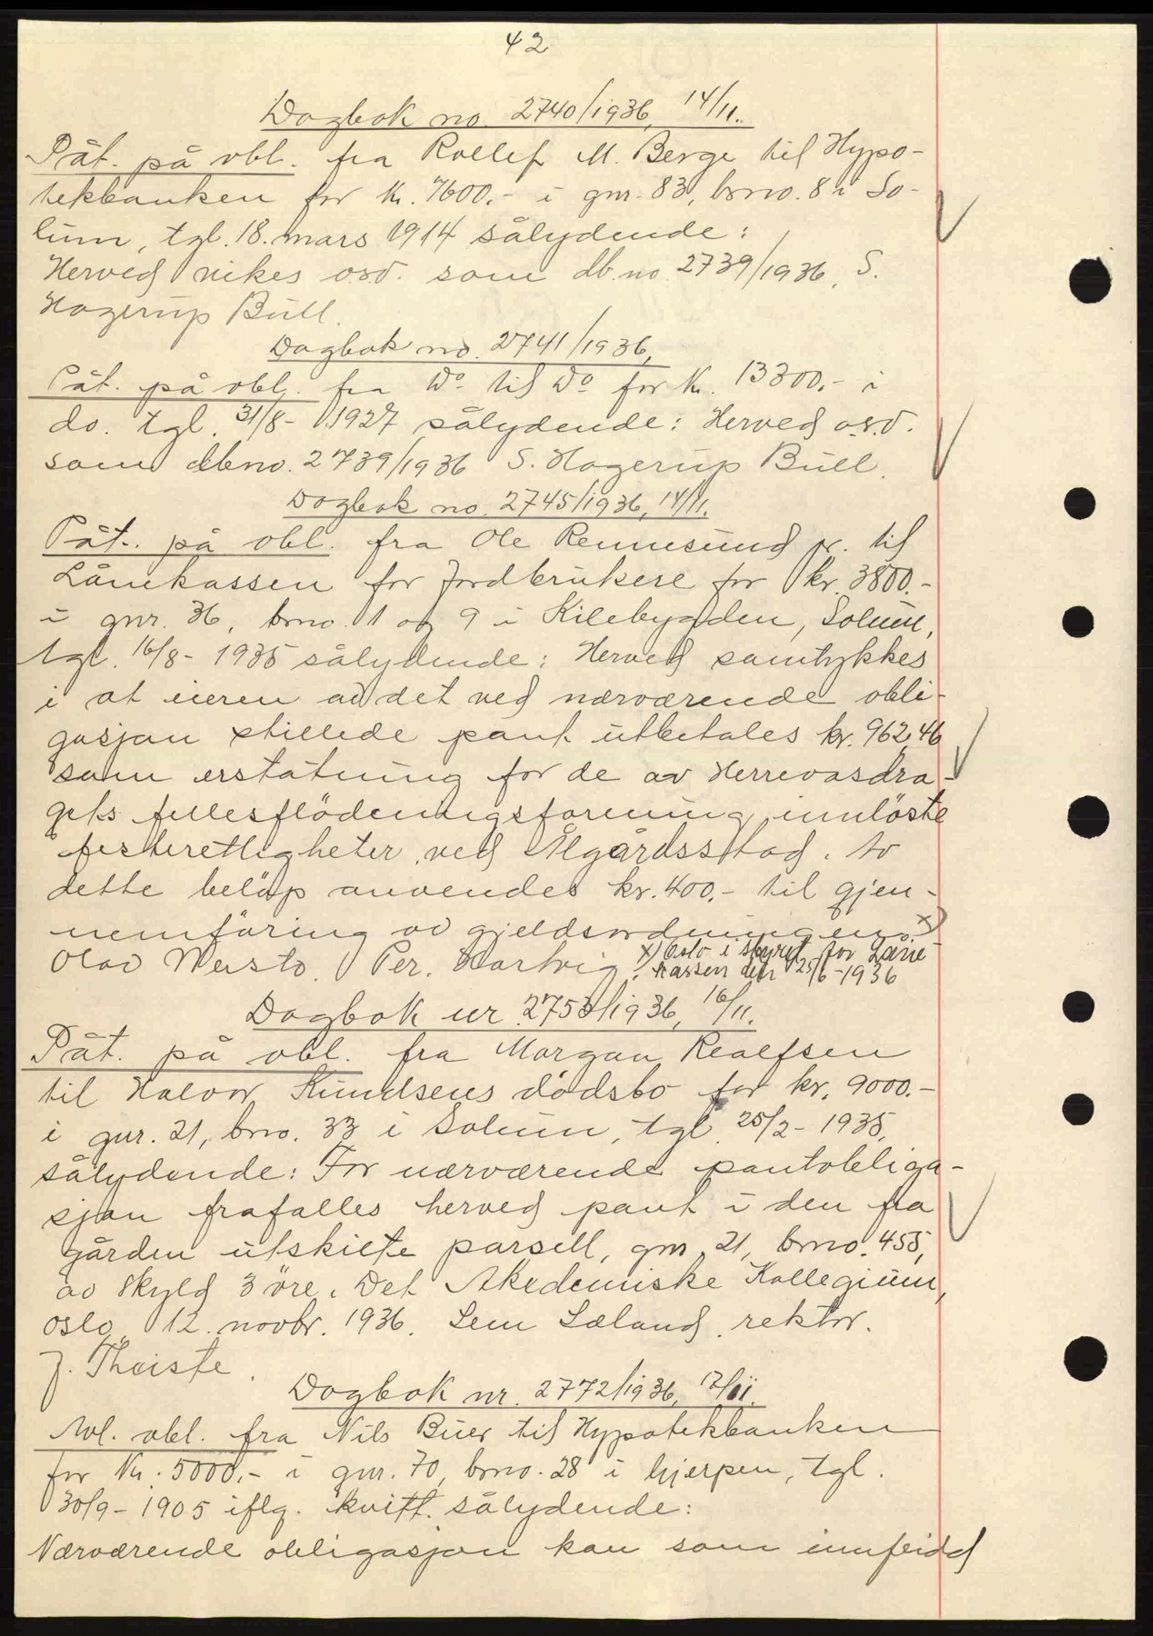 42
Dagbok no. 2740/1936, 14/11.
Påt. på obl. fra Rollef M. Berge til Hypo-
tekbanken for kr. 7600.- i gnr. 83, brno. 8 i So-
lum, tgl. 18. mars 1914 sålydende:
Herved vikes osv. som db.no. 2739/1936, S.
Hagerup Bull.
Dagbok no. 2741/1936,
Påt. på obl. fra Do til Do for kr. 13300.- i
do. tgl. 31/8- 1927 sålydende: Herved osv.
som dbno. 2739/1936 S. Hagerup Bull.
Dagbok no. 2745/1936, 14/11.
Påt. på obl. fra Ole Rennesund jr. til
Lånekassen for Jordbrukere for kr. 3800.-
i gnr. 36, brno. 1 og 9 i Kilebygden, Solum,
tgl. 16/8- 1935 sålydende: Herved samtykkes
i at eieren av det ved nærværende obli-
gasjon stillede pant utbetales kr. 962,46
som erstatning for de av Herrevasdra-
gets fellesflödningsforening innlöste
festerettigheter ved Ålgårdsstad. Av
dette belöp anvendes kr. 400.- til gjen-
nemföring av gjeldsordningen. x)
x) Oslo i styret for Låne-
kassen den 25/6-1936
Olav Meisto. Per. Hartvig.
Dagbok nr. 2753/1936, 16/11.
Påt. på obl. fra Morgan Realfsen
til Halvor Knudsens dödsbo for kr. 9000.-
i gnr. 21, brno. 33 i Solum, tgl. 25/2- 1935,
sålydende: For nærværende pantobliga-
sjon frafalles herved pant i den fra
gården utskilte parsell, gnr. 21, brno. 455,
av skyld 3 öre. Det Akademiske Kollegium,
Oslo, 12. novbr. 1936. Sem Sæland, rektor.
J. Theiste.
Dagbok nr. 2772/1936, 17/11.
Avl. obl. fra Nils Buer til Hypotekbanken
for kr. 5000.- i gnr. 70, brno. 28 i Gjerpen, tgl.
30/9- 1905 iflg. kvitt. sålydende:
Nærværende obligasjon kan som innfridd